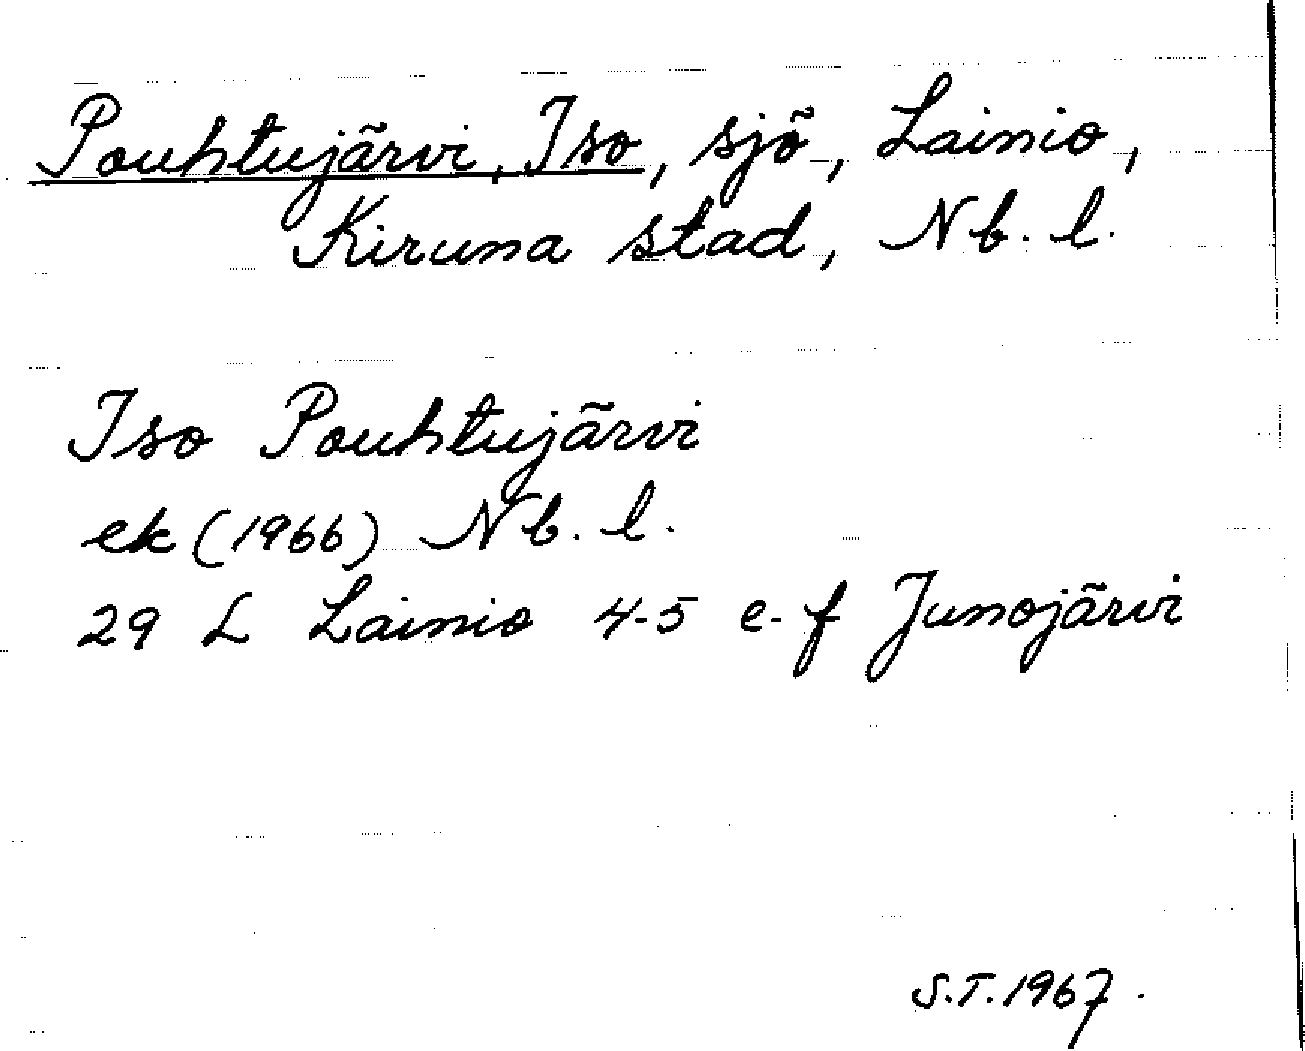 Pouhtujärvi, Iso, sjö, Lainio,
Kiruna stad, Nb. l.
Iso Pouhtujärvi
ek (1966) Nb. l.
29 L Lainio 4-5 e-f Junojärvi
S.T. 1967.